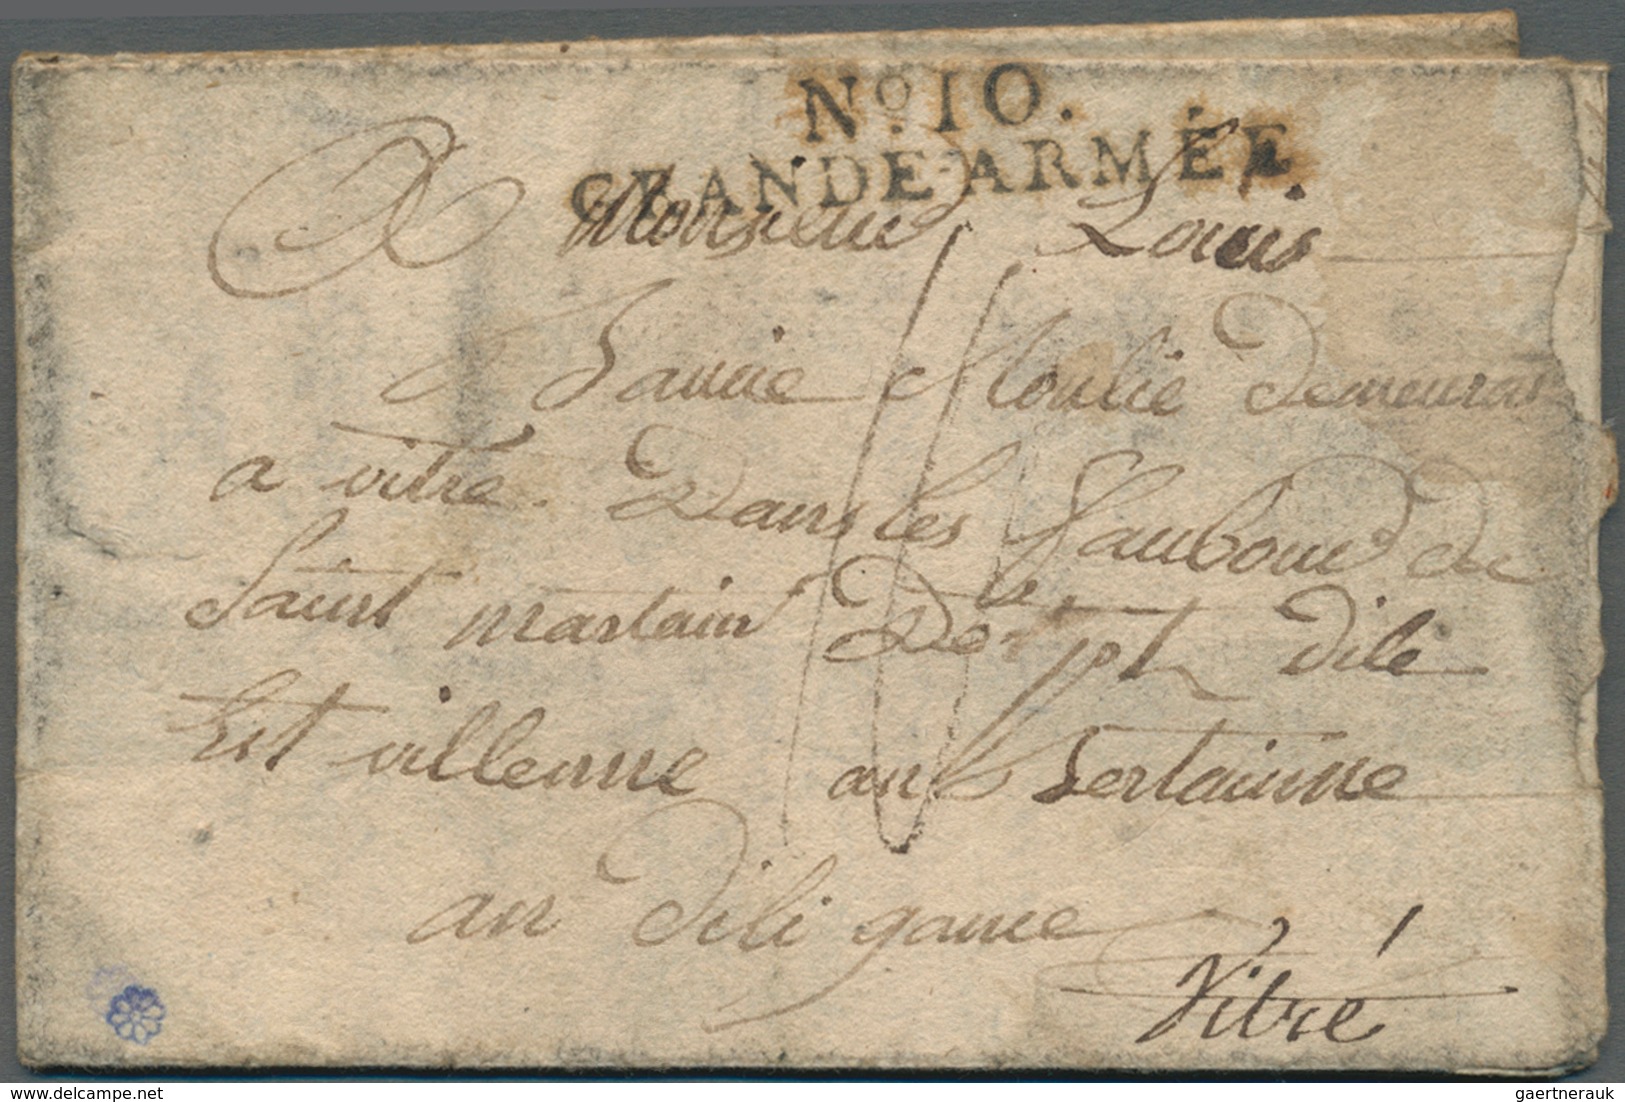 No. 10.
GRANDE-ARMÉE
A Monsieur Louis
Janvie Moulie Demeuras
a vitre. Dans les faubour de
Saint martain De dile
Est villenne an Sertainne
an dili game
Vitré
delcampe.net
gaertnerauk